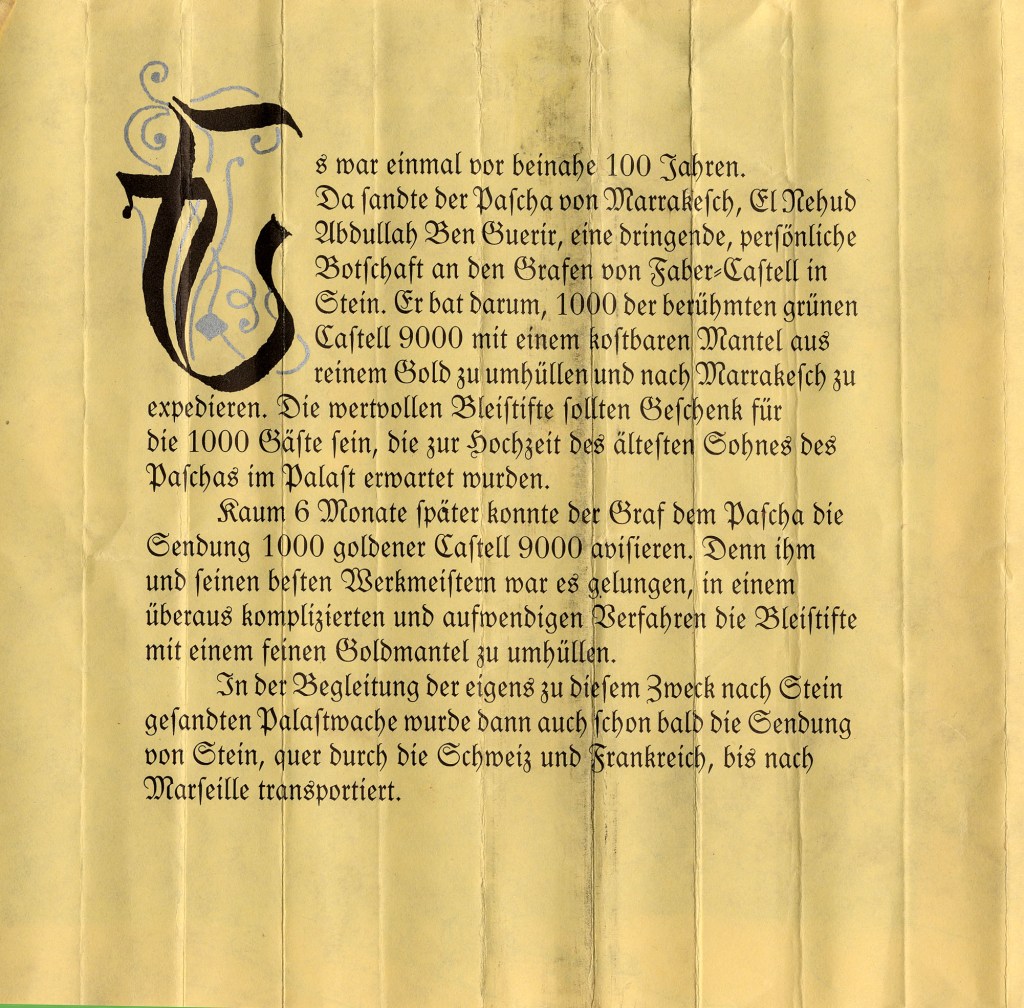 Es war einmal vor beinahe 100 Jahren.
Da sandte der Pascha von Marrakesch, El Nehud
Abdullah Ben Guerir, eine dringende, persönliche
Botschaft an den Grafen von Faber-Castell in
Stein. Er bat darum, 1000 der berühmten grünen
Castell 9000 mit einem kostbaren Mantel aus
reinem Gold zu umhüllen und nach Marrakesch zu
expedieren. Die wertvollen Bleistifte sollten Geschenk für
die 1000 Gäste sein, die zur Hochzeit des ältesten Sohnes des
Paschas im Palast erwartet wurden.
Kaum 6 Monate später konnte der Graf dem Pascha die
Sendung 1000 goldener Castell 9000 avisieren. Denn ihm
und seinen besten Werkmeistern war es gelungen, in einem
überaus komplizierten und aufwendigen Verfahren die Bleistifte
mit einem feinen Goldmantel zu umhüllen.
In der Begleitung der eigens zu diesem Zweck nach Stein
gesandten Palastwache wurde dann auch schon bald die Sendung
von Stein, quer durch die Schweiz und Frankreich, bis nach
Marseille transportiert.